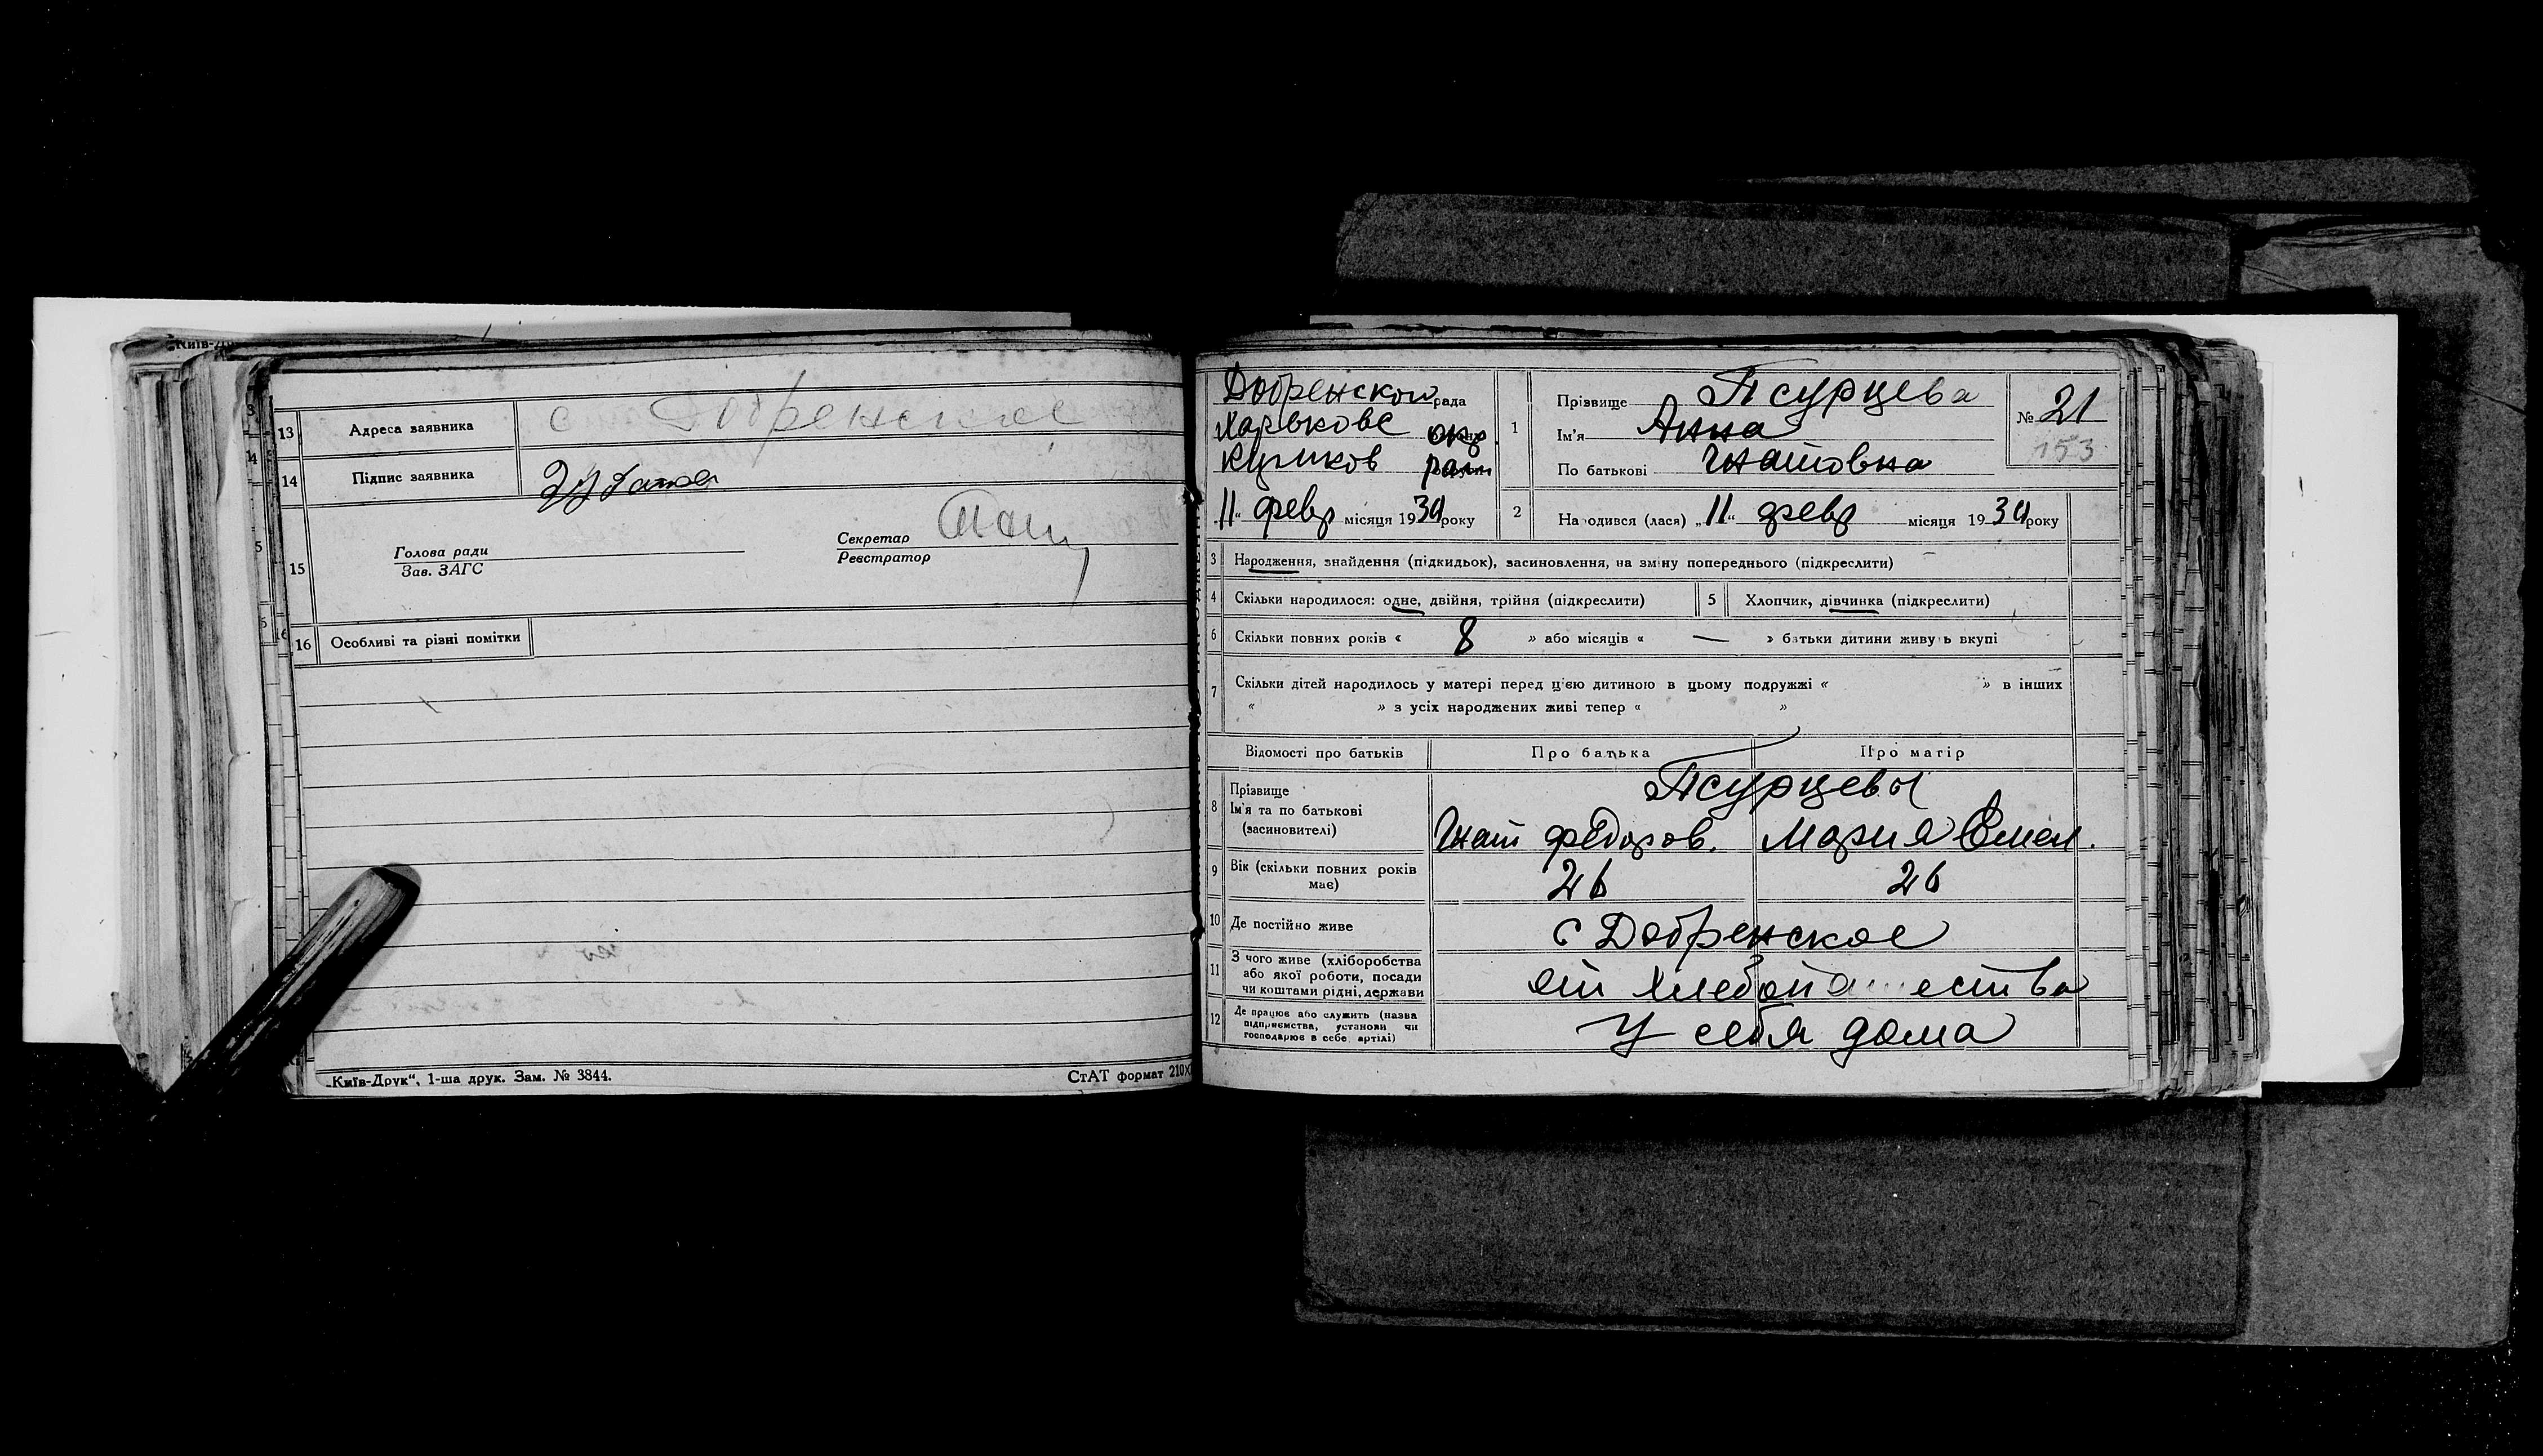 13 Адреса заявника с Добренское
14 Підпис заявника
15 Голова ради
Зав. ЗАГС
Секретар
Реєстратор
16 Особливі та різні помітки
„Київ-Друк“, 1-ша друк. Зам. № 3844.
СтАТ формат 210х
Добренского рада
Харьковс окр
Купъков рай
„11“ февр місяця 1930 року
1 Прізвище Псурцева
Ім'я Анна
По батькові Гнатовна
№ 21
153
2 Народився (лася) „11“ февр місяця 1930 року
3 Народження, знайдення (підкидьок), засиновлення, на зміну попереднього (підкреслити)
4 Скільки народилося: одне, двійня, трійня (підкреслити)
5 Хлопчик, дівчинка (підкреслити)
6 Скільки повних років « 8 » або місяців « — » батьки дитини живуть вкупі
7 Скільки дітей народилось у матері перед цією дитиною в цьому подружжі « » в інших
« » з усіх народжених живі тепер « »
Відомості про батьків Про батька Про матір
8 Прізвище Псурцевы
Ім'я та по батькові
(засиновителі) Гнат Федоров. Мария Емел.
9 Вік (скільки повних років має) 26 26
10 Де постійно живе с Добренское
11 З чого живе (хліборобства
або якої роботи, посади
чи коштами рідні, держави
от хлебопашества
12 Де працює або служить (назва
підприємства, установи чи
господарює в себе, артілі)
У себя дома